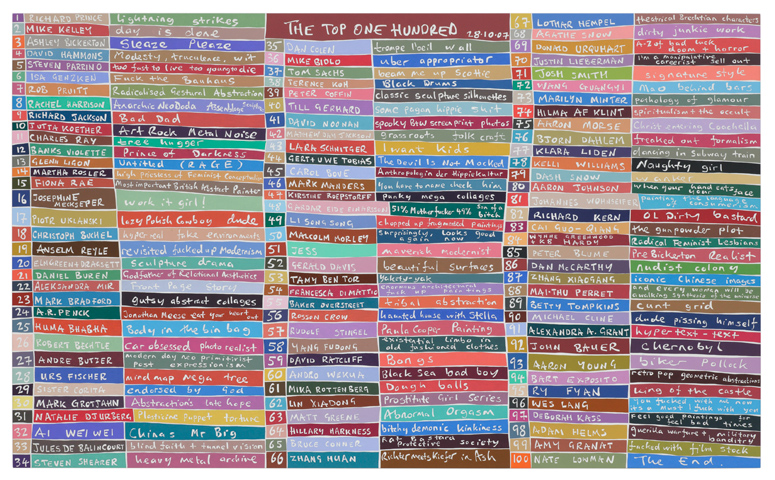 THE TOP ONE HUNDRED
28.10.07
1 RICHARD PRINCE lightning strikes
2 MIKE KELLEY day is done
3 ASHLEY BICKERTON Sleaze Pleaze
4 DAVID HAMMONS Modesty, truculence, wit
5 STEVEN PARRINO too fast to live too young to die
6 ISA GENZKEN Fuck the Bauhaus
7 ROB PRUITT Radicalised Gestural Abstraction
8 RACHEL HARRISON Anarchic NeoDada Assemblage
9 RICHARD JACKSON Bad Dad
10 JUTTA KOETHER Art Rock Metal Noise
11 CHARLES RAY tree hugger
12 BANKS VIOLETTE Prince of Darkness
13 GLENN LIGON Untitled (RAGE)
14 MARTHA ROSLER high priestess of Feminist Conceptualism
15 FIONA RAE Most important British Abstract Painter
16 JOSEPHINE MECKSEPER work it girl!
17 PIOTR UKLANSKI lazy Polish Cowboy dude
18 CHRISTOPH BUCHEL hyper-real fake environments
19 ANSELM REYLE revisited fucked up Modernism
20 ELMGREEN DRAGSETT Sculpture drama
21 DANIEL BUREN Godfather of Relational Aesthetics
22 ALEKSANDRA MIR Front Page Story
23 MARK BRADFORD gutsy abstract collages
24 A.R. PENCK Jonathan Meese eat your heart out
25 HUMA BHABHA Body in the bin bag
26 ROBERT BECHTLE Car obsessed photo realist
27 ANDRE BUTZER modern day neo primitivist post expressionism
28 URS FISCHER mind map mega tree
29 SISTER CORITA endorsed by God
30 MARK GROTJAHN Abstractions latchafe
31 NATALIE DJURBERG Plasticine puppet torture
32 AI WEI WEI Chinas Mr Big
33 JULES DE BALINCOURT blind faith + tunnel vision
34 STEVEN SHEARER heavy metal archive
35 DAN COLEN trompe l'oeil wall
36 MIKE BIDLO uber appropriator
37 TOM SACHS beam me up Scottie
38 TERENCE KOH Black Drums
39 PETER COFFIN classic sculpture silhouettes
40 TILL GERHARD some pagan hippie shit
41 DAVID NOONAN spooky B+W screenprint photos
42 grassroots folk craft
43 LARA SCHNITGER I want Kids
44 GERT + UWE TOBIAS The Devil Is Not Mocked
45 CAROL BOVE Anthropologin der Hippiekultur
46 MARK MANDERS You have to name check him
47 KIRSTINE ROEPSTORFF punky mega collages
48 51% Motherfucker 49% Son of a bitch
49 LI SONGSONG chopped up fragmented paintings
50 MALCOLM MORLEY Surprisingly, looks good again now
51 JESS maverick modernist
52 GERALD DAVIS beautiful surfaces
53 TAMY BEN TOR yakety-yak
54 FRANCESCA DIMATTIO enormous architectural fuck up paintings
55 BAKER OVERSTREET tribal abstraction
56 ROSSON CROW haunted house with Stella
57 RUDOLF STINGEL Paula Cooper Painting
58 YANG FUDONG existential limbo in old fashioned clothes
59 DAVID RATCLIFF Bongs
60 ANDRO WEKUA Black Sea bad boy
61 MIKA ROTTENBERG Dough balls
62 LIN XIADONG Prostitute Girl Series
63 MATT GREENE Abnormal Orgasm
64 HILLARY HARKNESS bitchy demonic kinkiness
65 BRUCE CONNER Rat Bastard Protective society
66 ZHANG HUAN Richter meets Kiefer in Ash
67 LOTHAR HEMPEL theatrical Brechtian characters
68 AGATHE SNOW dirty junkie work
69 DONALD URQUHART A-Z of bad luck, doom + horror
70 JUSTIN LIEBERMAN I'm a manipulative careerist sell out
71 JOSH SMITH signature style
72 WANG GUANGYI Mao behind bars
73 MARILYN MINTER pathology of glamour
74 HILMA AF KLINT spiritualism + the occult
75 AARON MORSE Christ entering Coachella
76 BJORN DAHLEM freaked out formalism
77 KLARA LIDEN dancing in Subway train
78 KELLI WILLIAMS Naughty girl
79 DASH SNOW
80 AARON JOHNSON when your hand eats your face
81 JOHANNES WOHNSEIFER
82 RICHARD KERN Ol Dirty Bastard
83 CAI GUO-QIANG the gunpowder plot
84 Radical Feminist Lesbians
85 PETER BLUME Pre Bickerton Realist
86 DAN MCCARTHY nudist colony
87 ZHANG XIAOGANG iconic Chinese images
88 MAI-THU PERRET and every woman will be a walking synthesis of the universe
89 BETTY TOMPKINS cunt grid
90 MICHAEL CLINE dude pissing himself
91 ALEXANDRA A. GRANT hypertext-text
92 JOHN BAUER Chernobyl
93 AARON YOUNG biker Pollock
94 BART EXPOSITO retro pop geometric abstractions
95 RY FYAN King of the castle
96 WES LANG You fucked with me now its a must I fuck with you
97 DEBORAH KASS Feel good paintings for feel bad times
98 ADAM HELMS guerilla warfare + military banditry
99 AMY GRANAT fucked with film stock
100 NATE LOWMAN The End.